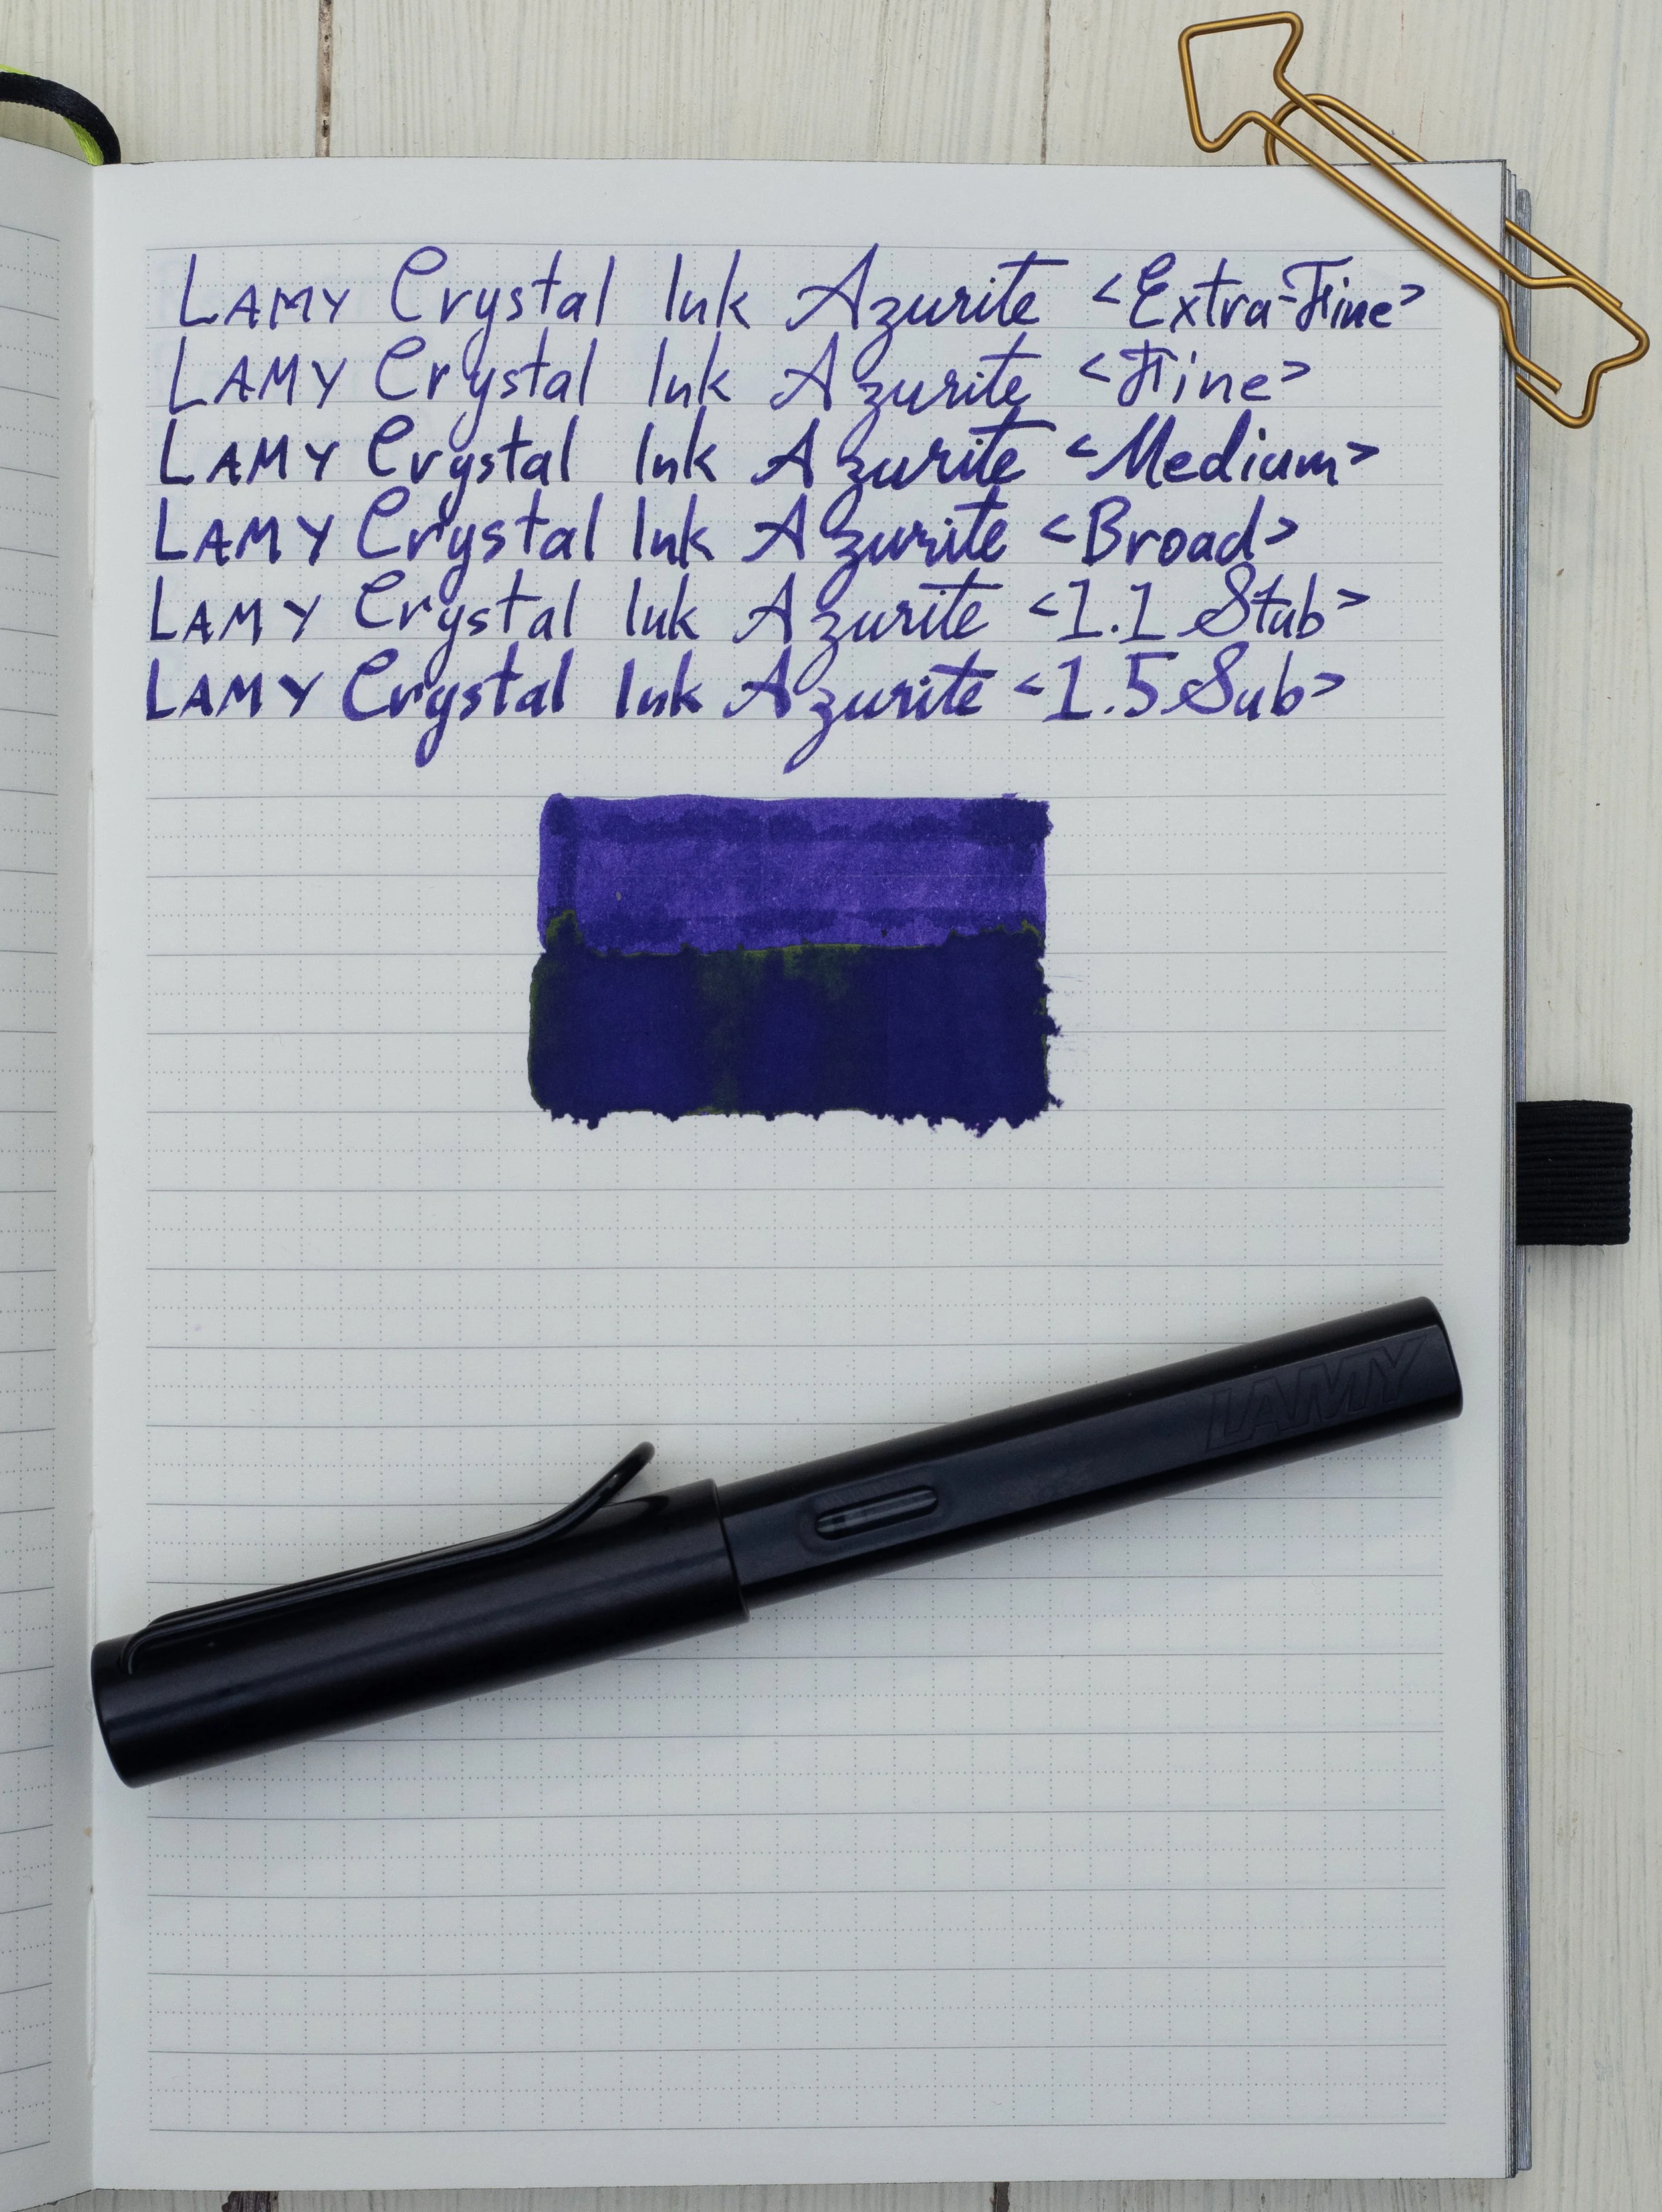 LAMY Crystal Ink Azurite <Extra-Fine>
LAMY Crystal Ink Azurite <Fine>
LAMY Crystal Ink Azurite <Medium>
LAMY Crystal Ink Azurite <Broad>
LAMY Crystal Ink Azurite <1.1 Stub>
LAMY Crystal Ink Azurite <1.5 Sub>
LAMY